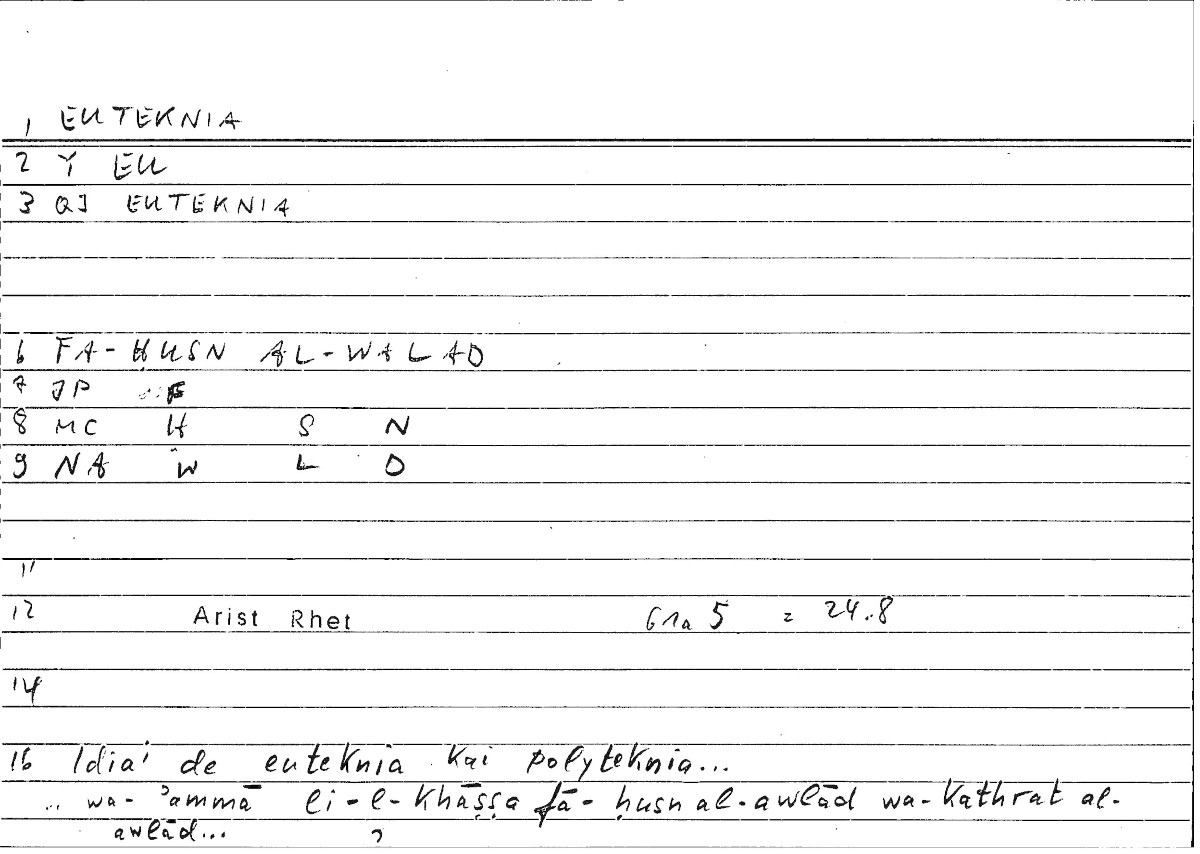 1 EUTEKNIA
2 Y EU
3 QJ EUTEKNIA
6 FA-ḤUSN AL-WALAD
7 JP F
8 MC Ḥ S N
9 NA W L D
11
12 Arist Rhet 61a 5 = 24.8
14
16 Idiai de euteknia kai polyteknia...
.. wa-ʾammā li-l-khāṣṣa fā-ḥusn al-awlād wa-kathrat al-
awlād...